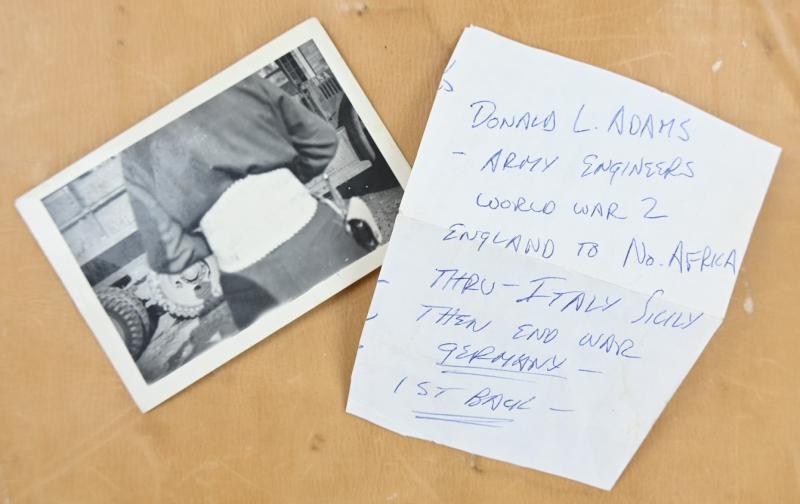 DONALD L. ADAMS
- ARMY ENGINEERS
WORLD WAR 2
ENGLAND TO NO. AFRICA
THRU - ITALY SICILY
THEN END WAR
GERMANY -
1ST BACK -